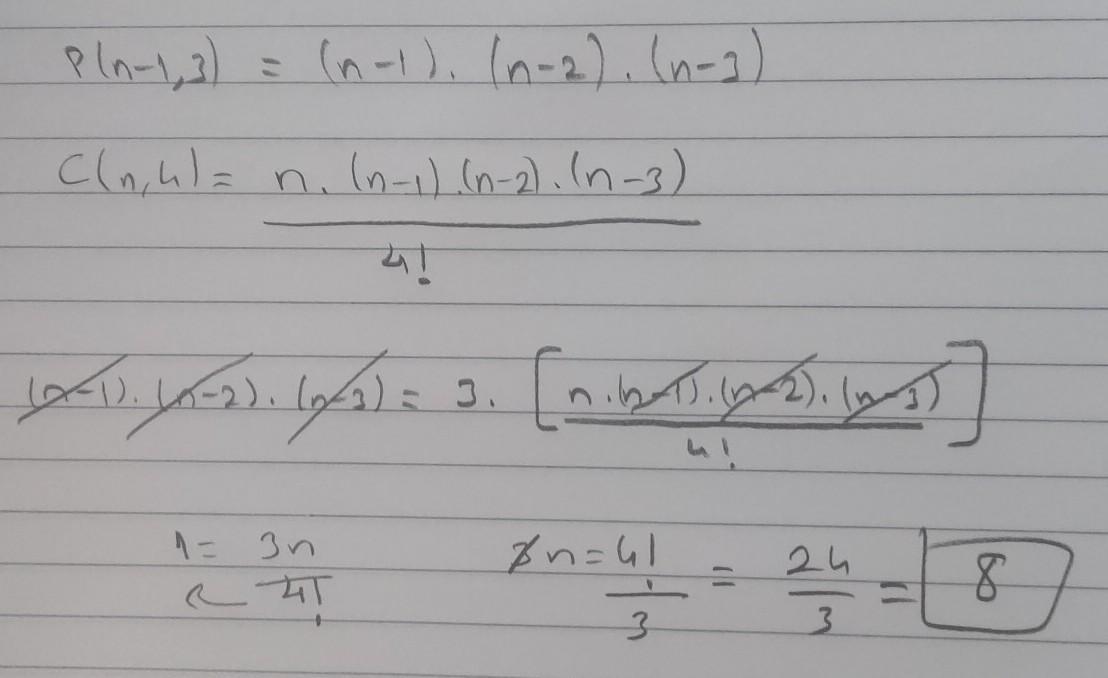 P(n-1,3) = (n-1). (n-2). (n-3)
C(n,4) = n. (n-1).(n-2).(n-3)
4!
(n-1). (n-2). (n-3) = 3. [n.(n-1).(n-2).(n-3)]
4!
1 = 3n 3n = 4! = 24 = 8
4! 3 3